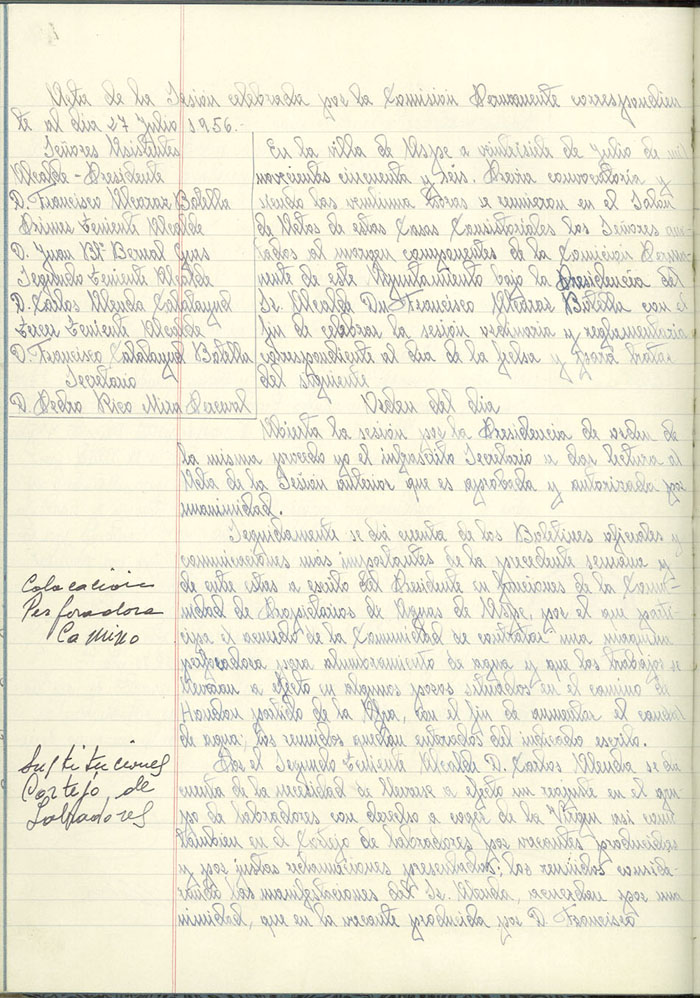 Acta de la Sesión celebrada por la Comisión Permanente correspondien
te al día 27 Julio 1956.-
Señores Asistentes
Alcalde-Presidente
D. Francisco Alcaraz Botella
Primer Teniente Alcalde
D. Juan Bta Bernal Gras
Segundo Teniente Alcalde
D. Carlos Alenda Calatayud
Tercer Teniente Alcalde
D. Francisco Calatayud Botella
Secretario
D. Pedro Rico Mira Perceval
En la villa de Aspe a veintisiete de Julio de mil
novecientos cincuenta y seis. Previa convocatoria y
siendo las veintiuna horas se reunieron en el Salón
de Actos de estas Casas Consistoriales los Señores ano-
tados al margen componentes de la Comisión Perma-
nente de este Ayuntamiento bajo la Presidencia del
Sr. Alcalde Dn. Francisco Alcaraz Botella con el
fin de celebrar la sesión ordinaria y reglamentaria
correspondiente al día de la fecha y para tratar
del siguiente
Orden del día
Abierta la sesión por la Presidencia de orden de
la misma procedo yo el infrascrito Secretario a dar lectura al
Acta de la Sesión anterior que es aprobada y autorizada por
unanimidad.
Seguidamente se da cuenta de los Boletines oficiales y
comunicaciones más importantes de la precedente semana y
de entre estas a escrito del Presidente en funciones de la Comu-
nidad de Propietarios de Aguas de Aspe, por el que parti-
cipa el acuerdo de la Comunidad de contratar una maquina
perforadora para alumbramiento de agua y que los trabajos se
llevaran a efecto en algunos pozos situados en el camino de
Hondon partido de la Alfa, con el fin de aumentar el caudal
de agua; los reunidos quedan enterados del indicado escrito.
Colocación
Perforadora
Camino
Por el Segundo Teniente Alcalde D. Carlos Alenda se da
cuenta de la necesidad de llevarse a efecto un reajuste en el gru-
po de labradores con derecho a coger de la Virgen asi como
tambien en el Cortejo de labradores por vacantes producidas
y por justas reclamaciones presentadas; los reunidos conside-
rando las manifestaciones del Sr. Alenda, acuerdan por una
nimidad, que en la vacante producida por D. Francisco
Sustituciones
Cortejo de
Labradores